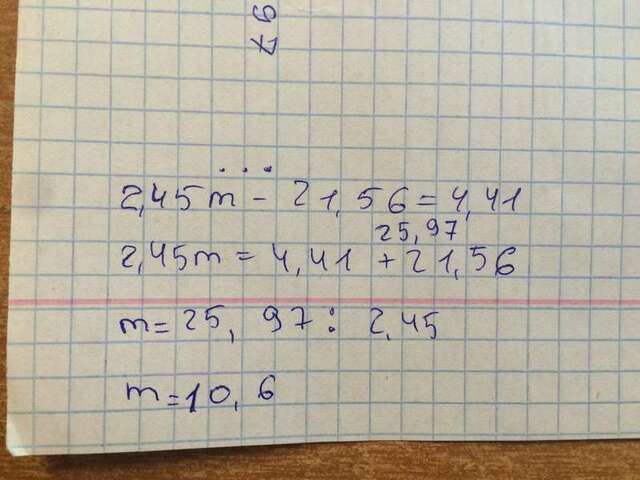 97
...
2,45m - 21,56 = 4,41
25,97
2,45m = 4,41 + 21,56
m = 25,97 : 2,45
m = 10,6